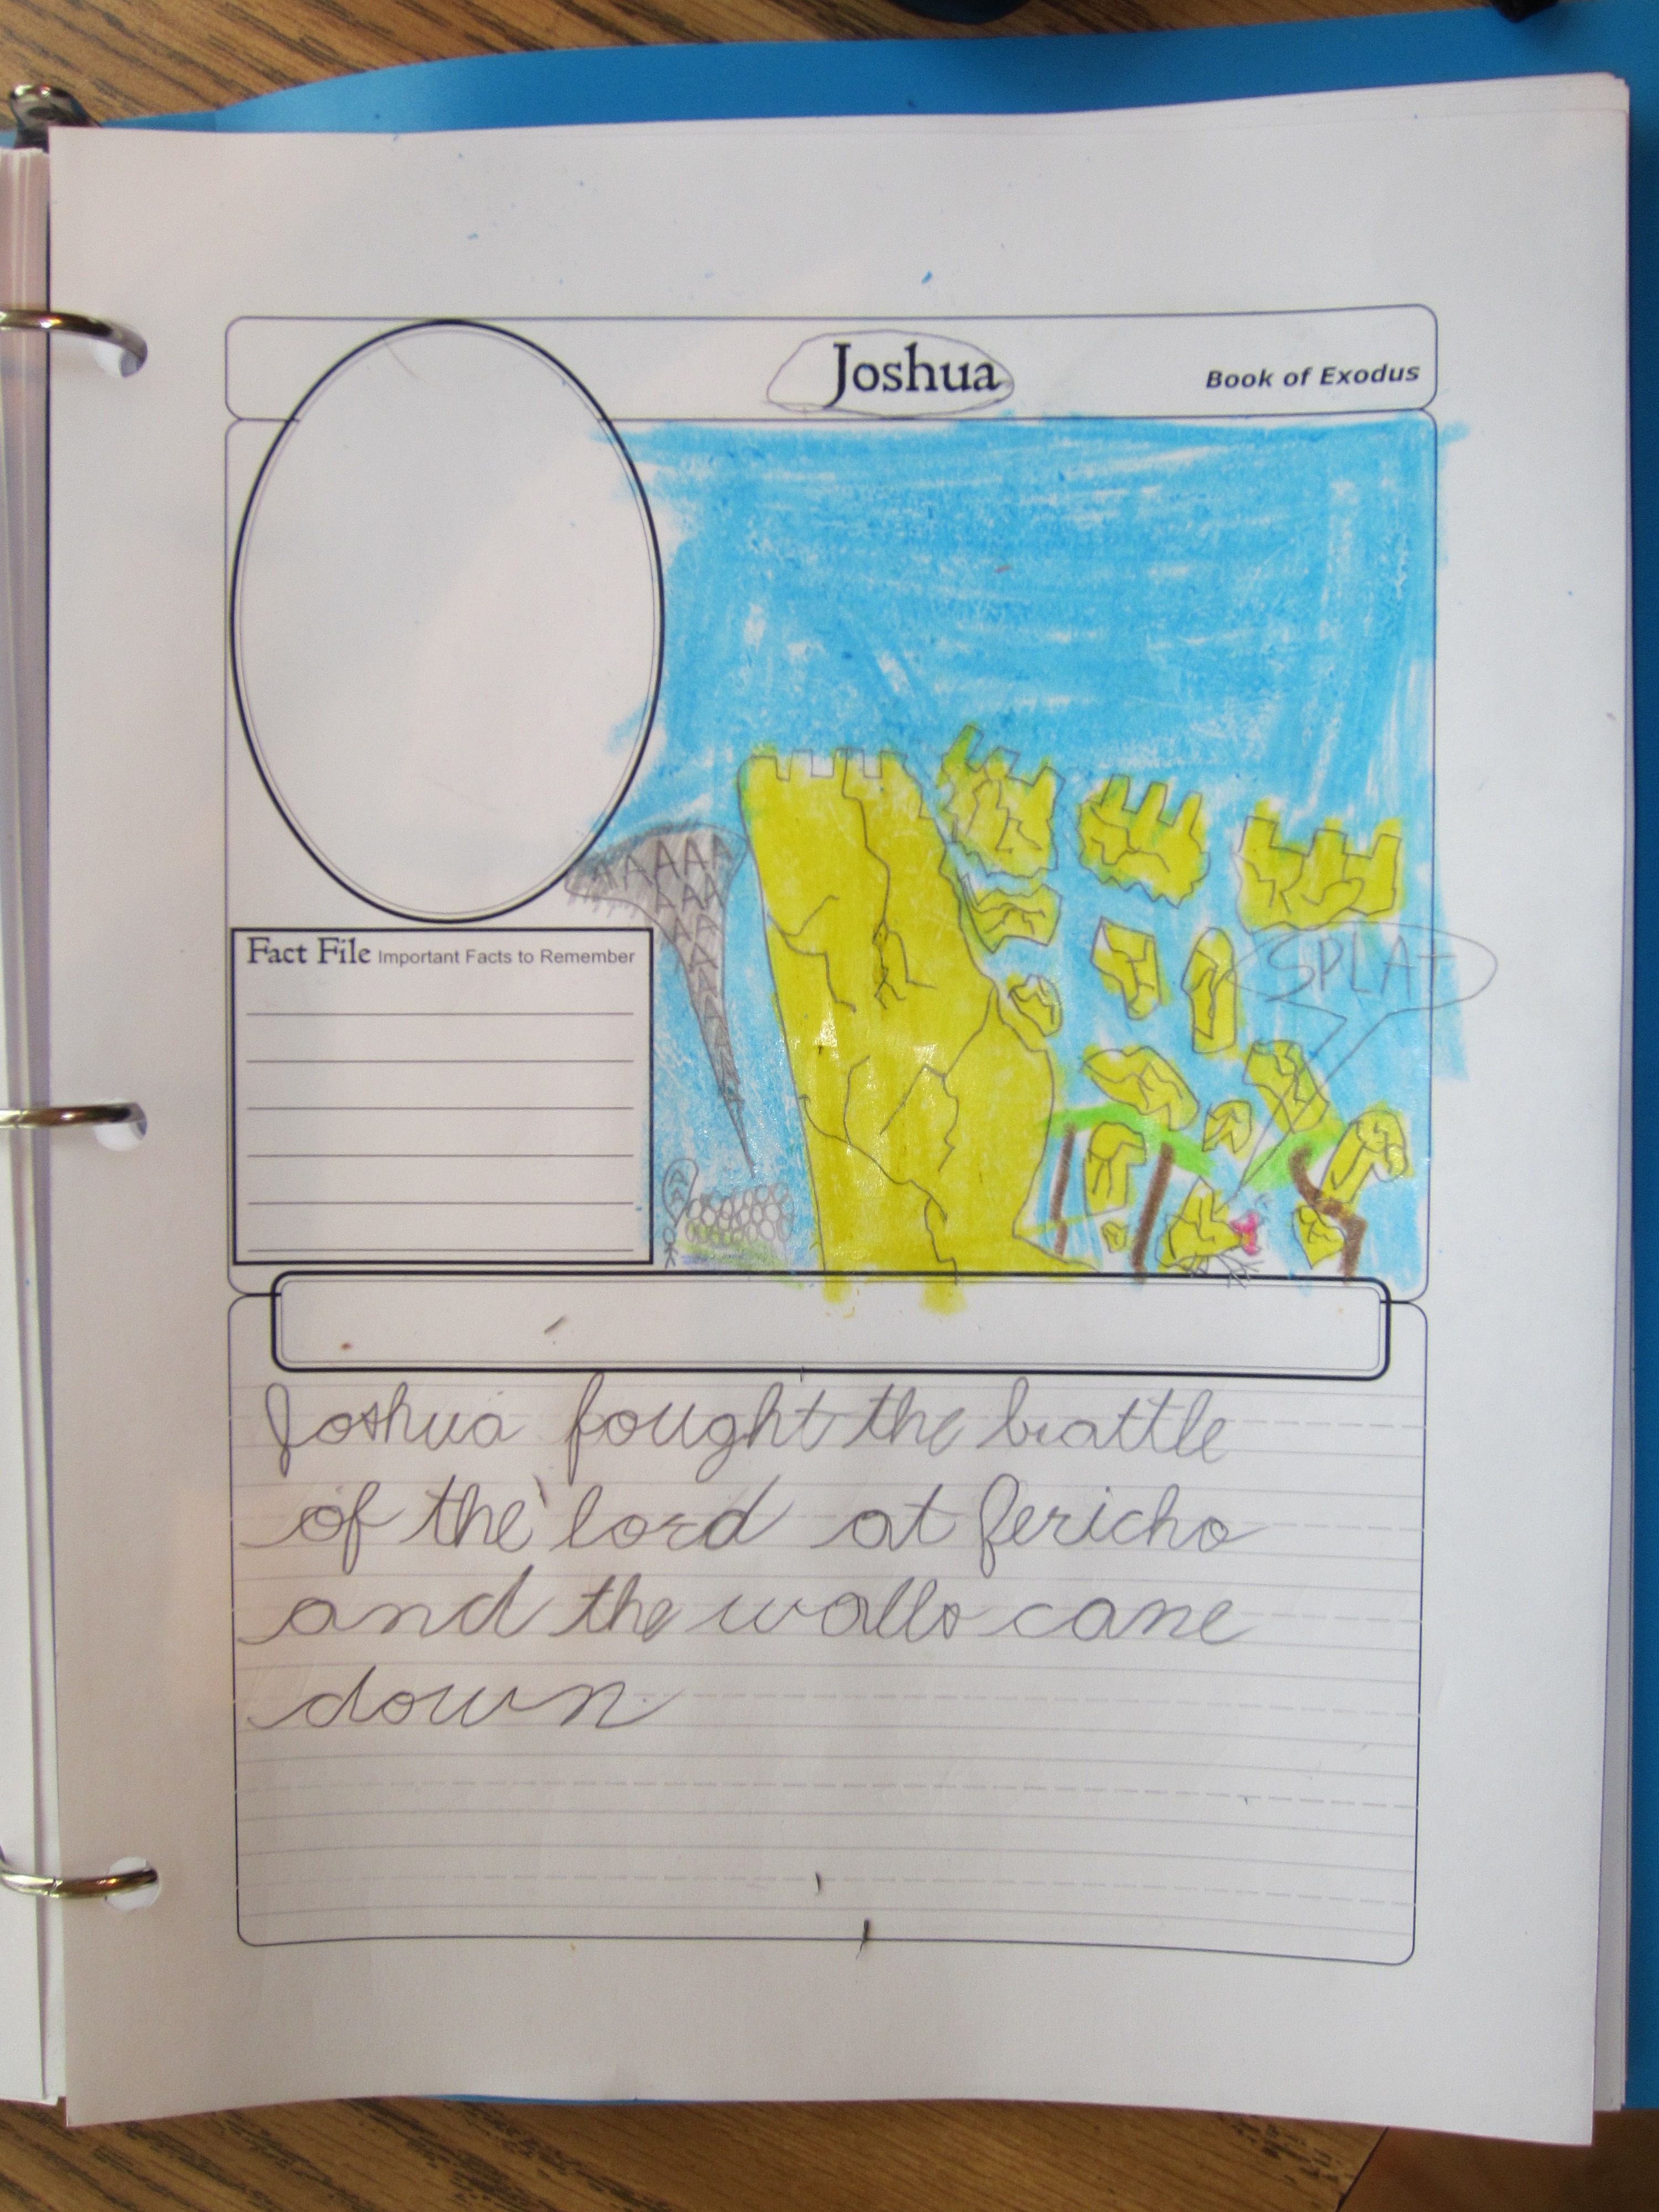 Joshua
Book of Exodus
Fact File Important Facts to Remember
AAAAA
SPLAT
AAA
Joshua fought the brattle
of the lord at Jericho
and the walls cane
down.